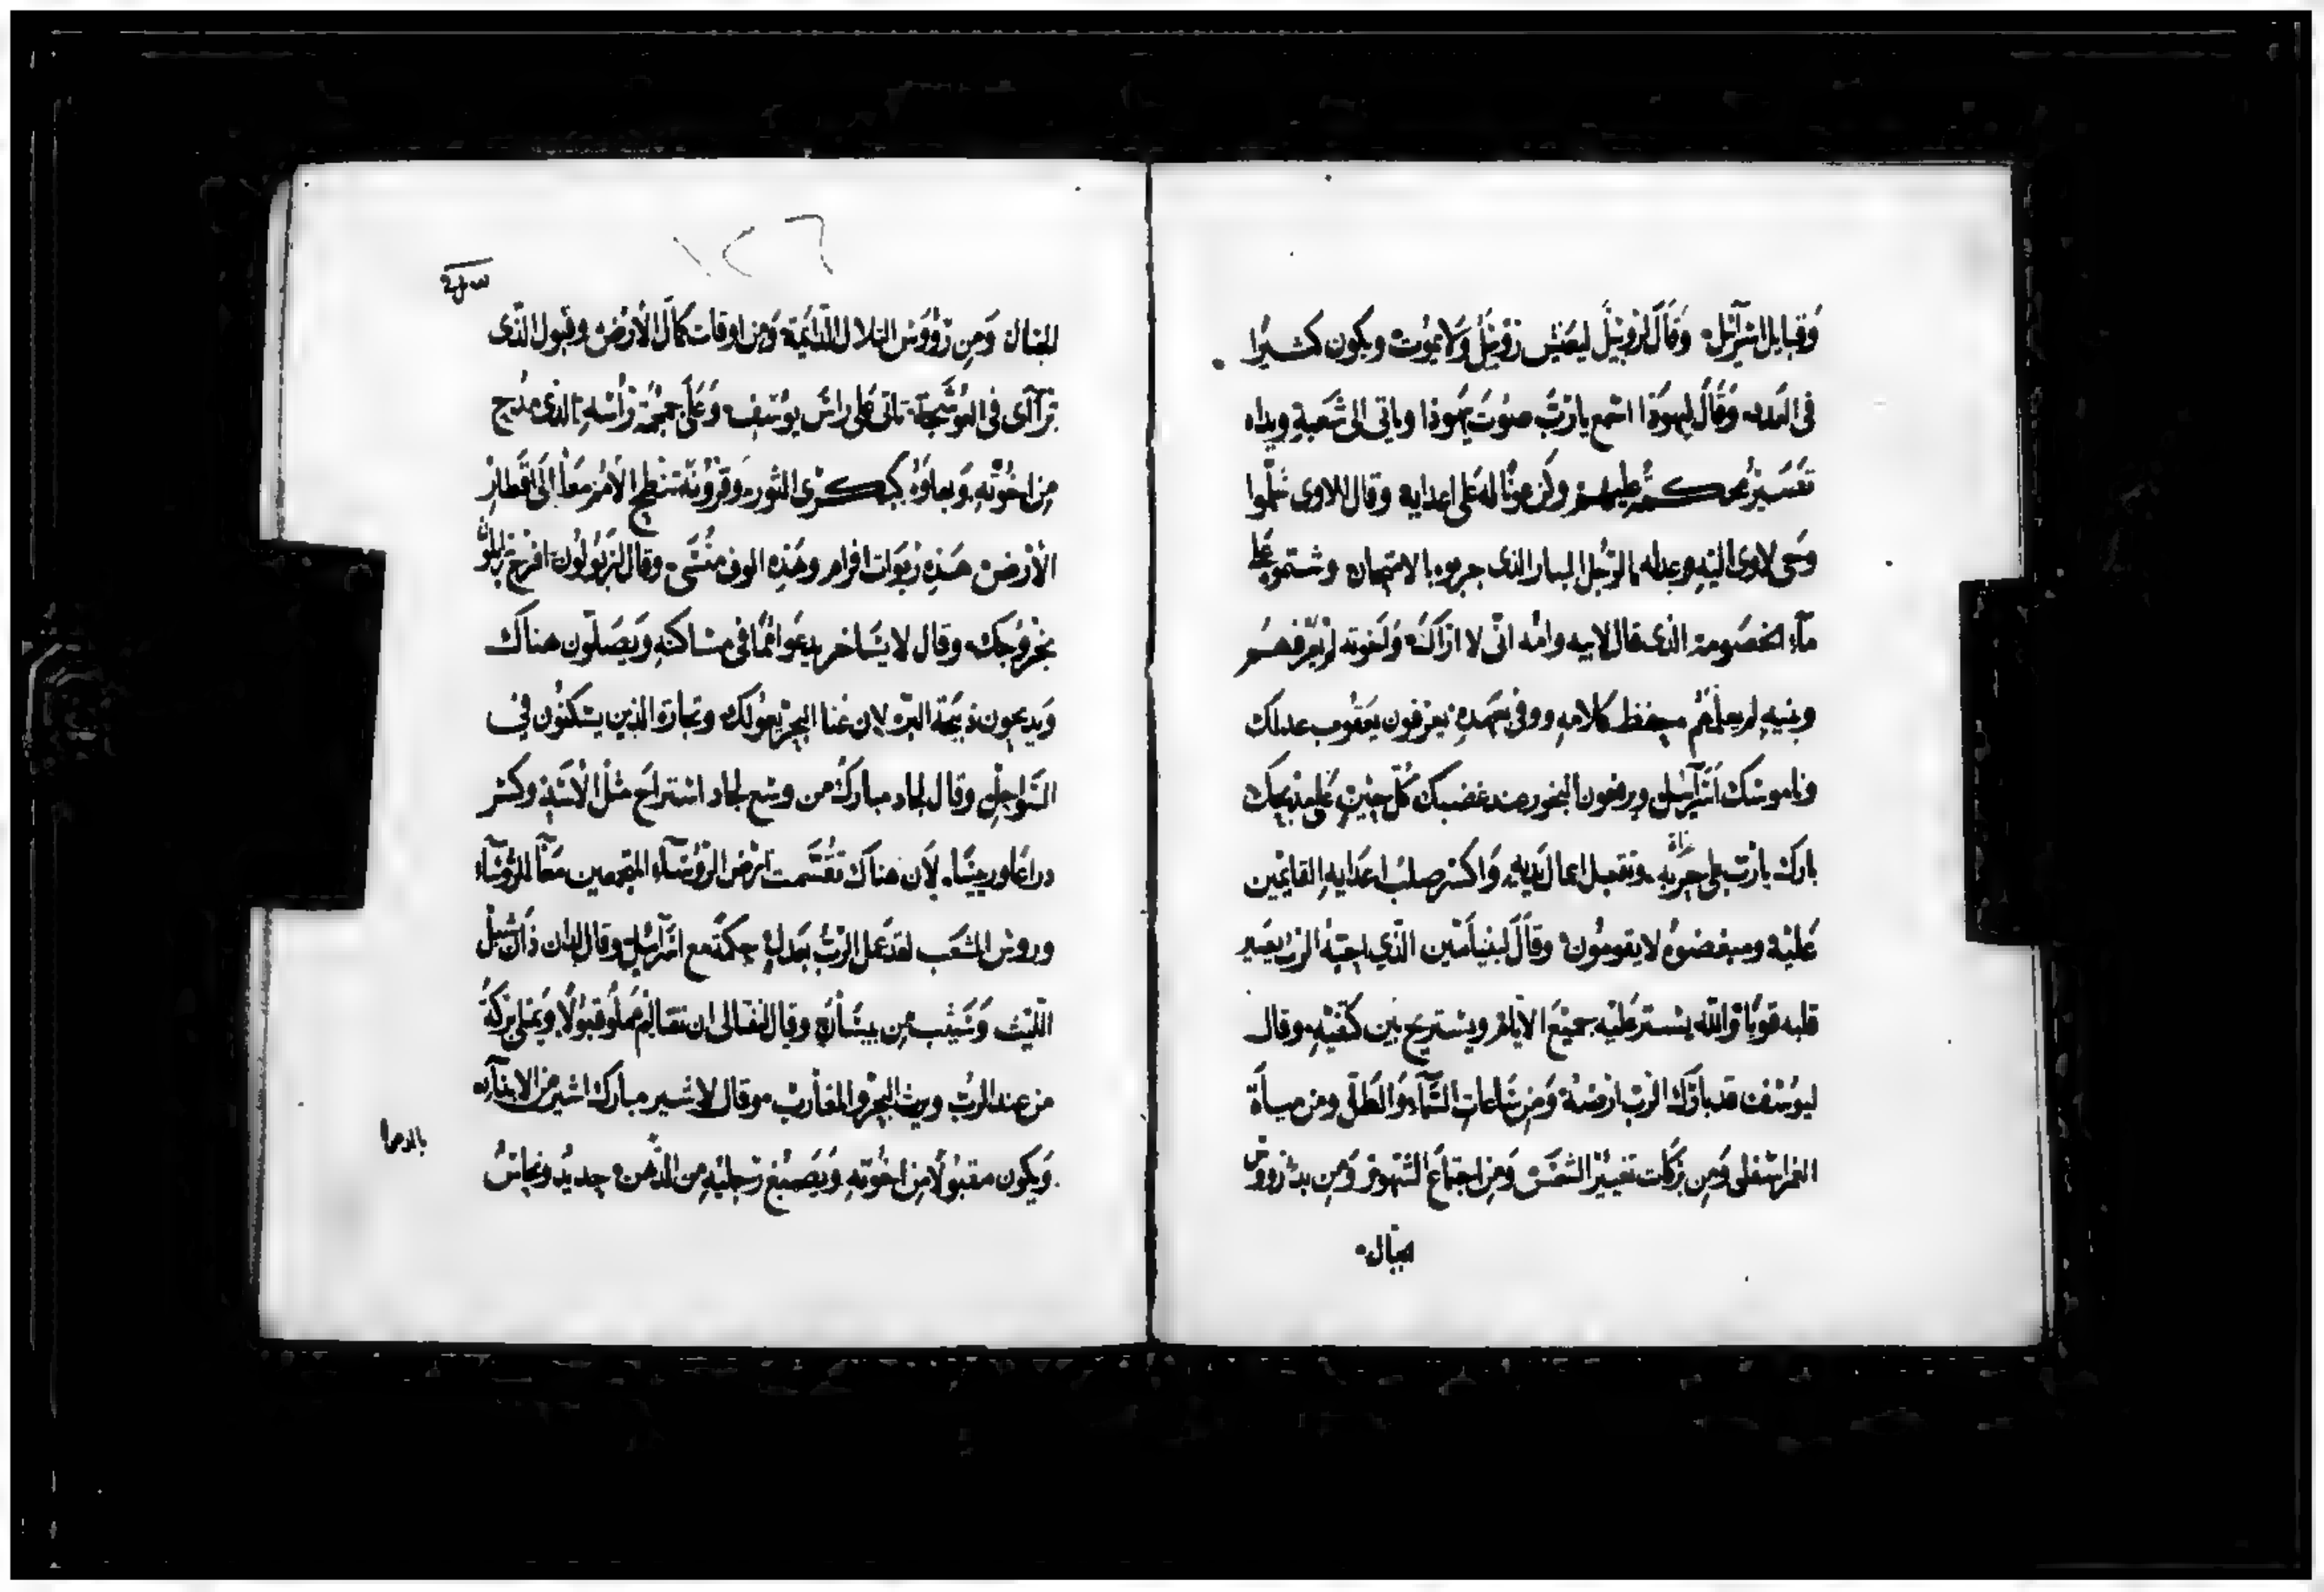 وَقبايل اسرآئيل وَقَالَ لروبيل ليعَيش رُوبيل وَلا يموُت ويكون كثيرا
فى العَدد وَقَالَ ليهوَذا اسمع يا رَبّ صوُت يَهوذا وياتى الى شَعبهِ ويداه
وكن عونًا له عَلى اعدايه وقال للاوى
الرَجُل البار الذى جربوه بالامتحان وشتموه عَلى
مآء الخصُومة الذى قال لابيه وامه انّى لا ارَاكَ وَلخوته لم يعرَفهم
وبنيهِ لم يعلم حفظ كلامهِ ووفى بعَهدهِ يعرَفون يعَقوب عدلك
وناموسَك اسَرآئيل ويرفعون البخور عند غضبك كُلّ حِين عَلى مذبحك
بارك يا ربّ على وتقبل اعمال يَديه وَاكسر صلب اعدَايه القايمين
عَليهْ ومبغضوهُ لا يقومُون وقالَ لبنيَامين الذَّي احبّهُ الرَبّ يصَير
قلبه قويًا والله يسَتر عَليه جميع الايام ويستريح بين كتفيْهِ وقال
ليوُسُف قد بارَك الرَبّ ارضهُ وَمِن سَاعات السَّمآء وَالطَلّ ومن مياة
الغمر اسَفلى وَمِن بَركات تغييرْ الشمَسَ وَمِن اجتماعَ الشهور وَمِن بد رووس
الجبال
الجبال وَمِن رؤُوسَ التلال الدّايمَة وَمِن اوقات كمالَ الارَض وقبول الذّى
ترآآى فى العَوسَجة تاتى عَلى راسَ يوُسَف وَعَلى جمجمُة رَاسَهِ الذى
مِن اخوُتهِ وَبهاوَهُ كبكرى الثور وَقرُونه تنطح الامُم معَاً الى اقطار
الارَض هَذهِ رَبوَات افرام وهَذهِ الوف منسَّى وقال لزبولون افرح
بخرُوجَك وقال لايسَاخر يدعوا امُمًا فى مسَاكنهِ وَيصَلّون هناكَ
وَيذبحون ذبيحَة البرّ لان غنا البحر يعوَلك وتجارة الذين يسَكنوُن فى
السَوَاحِل وقال لجاد مباركُ من وسَع لجاد اسَتراحَ مثل الاسَد وكسَر
دراعَا وريسًا لاَن هناكَ تقُسَّمت ارَض الروُسَآء المجتمعين معَاً للروسَآء
وروس الشعَب لقد عَمل الرَبُّ بعَدلهِ حِكمَة مع اسَرآئيل وقال لدان دَان شبل
اللّيث وَسَيثب مِن بيسَان وقال لنفتالى ان نفتاليم مملوُ قبوُلاً ويمتلى برَكةً
مِن عند الربّ ويرث البحر والمغارَب وقال لاشير مباركَ اشير مِن الابنآء
وَيكون مقبوُلاً مِن اخوُتهِ وَيَصبُغ رَجليْهِ من الدّهن جديدُ ونحاسُ